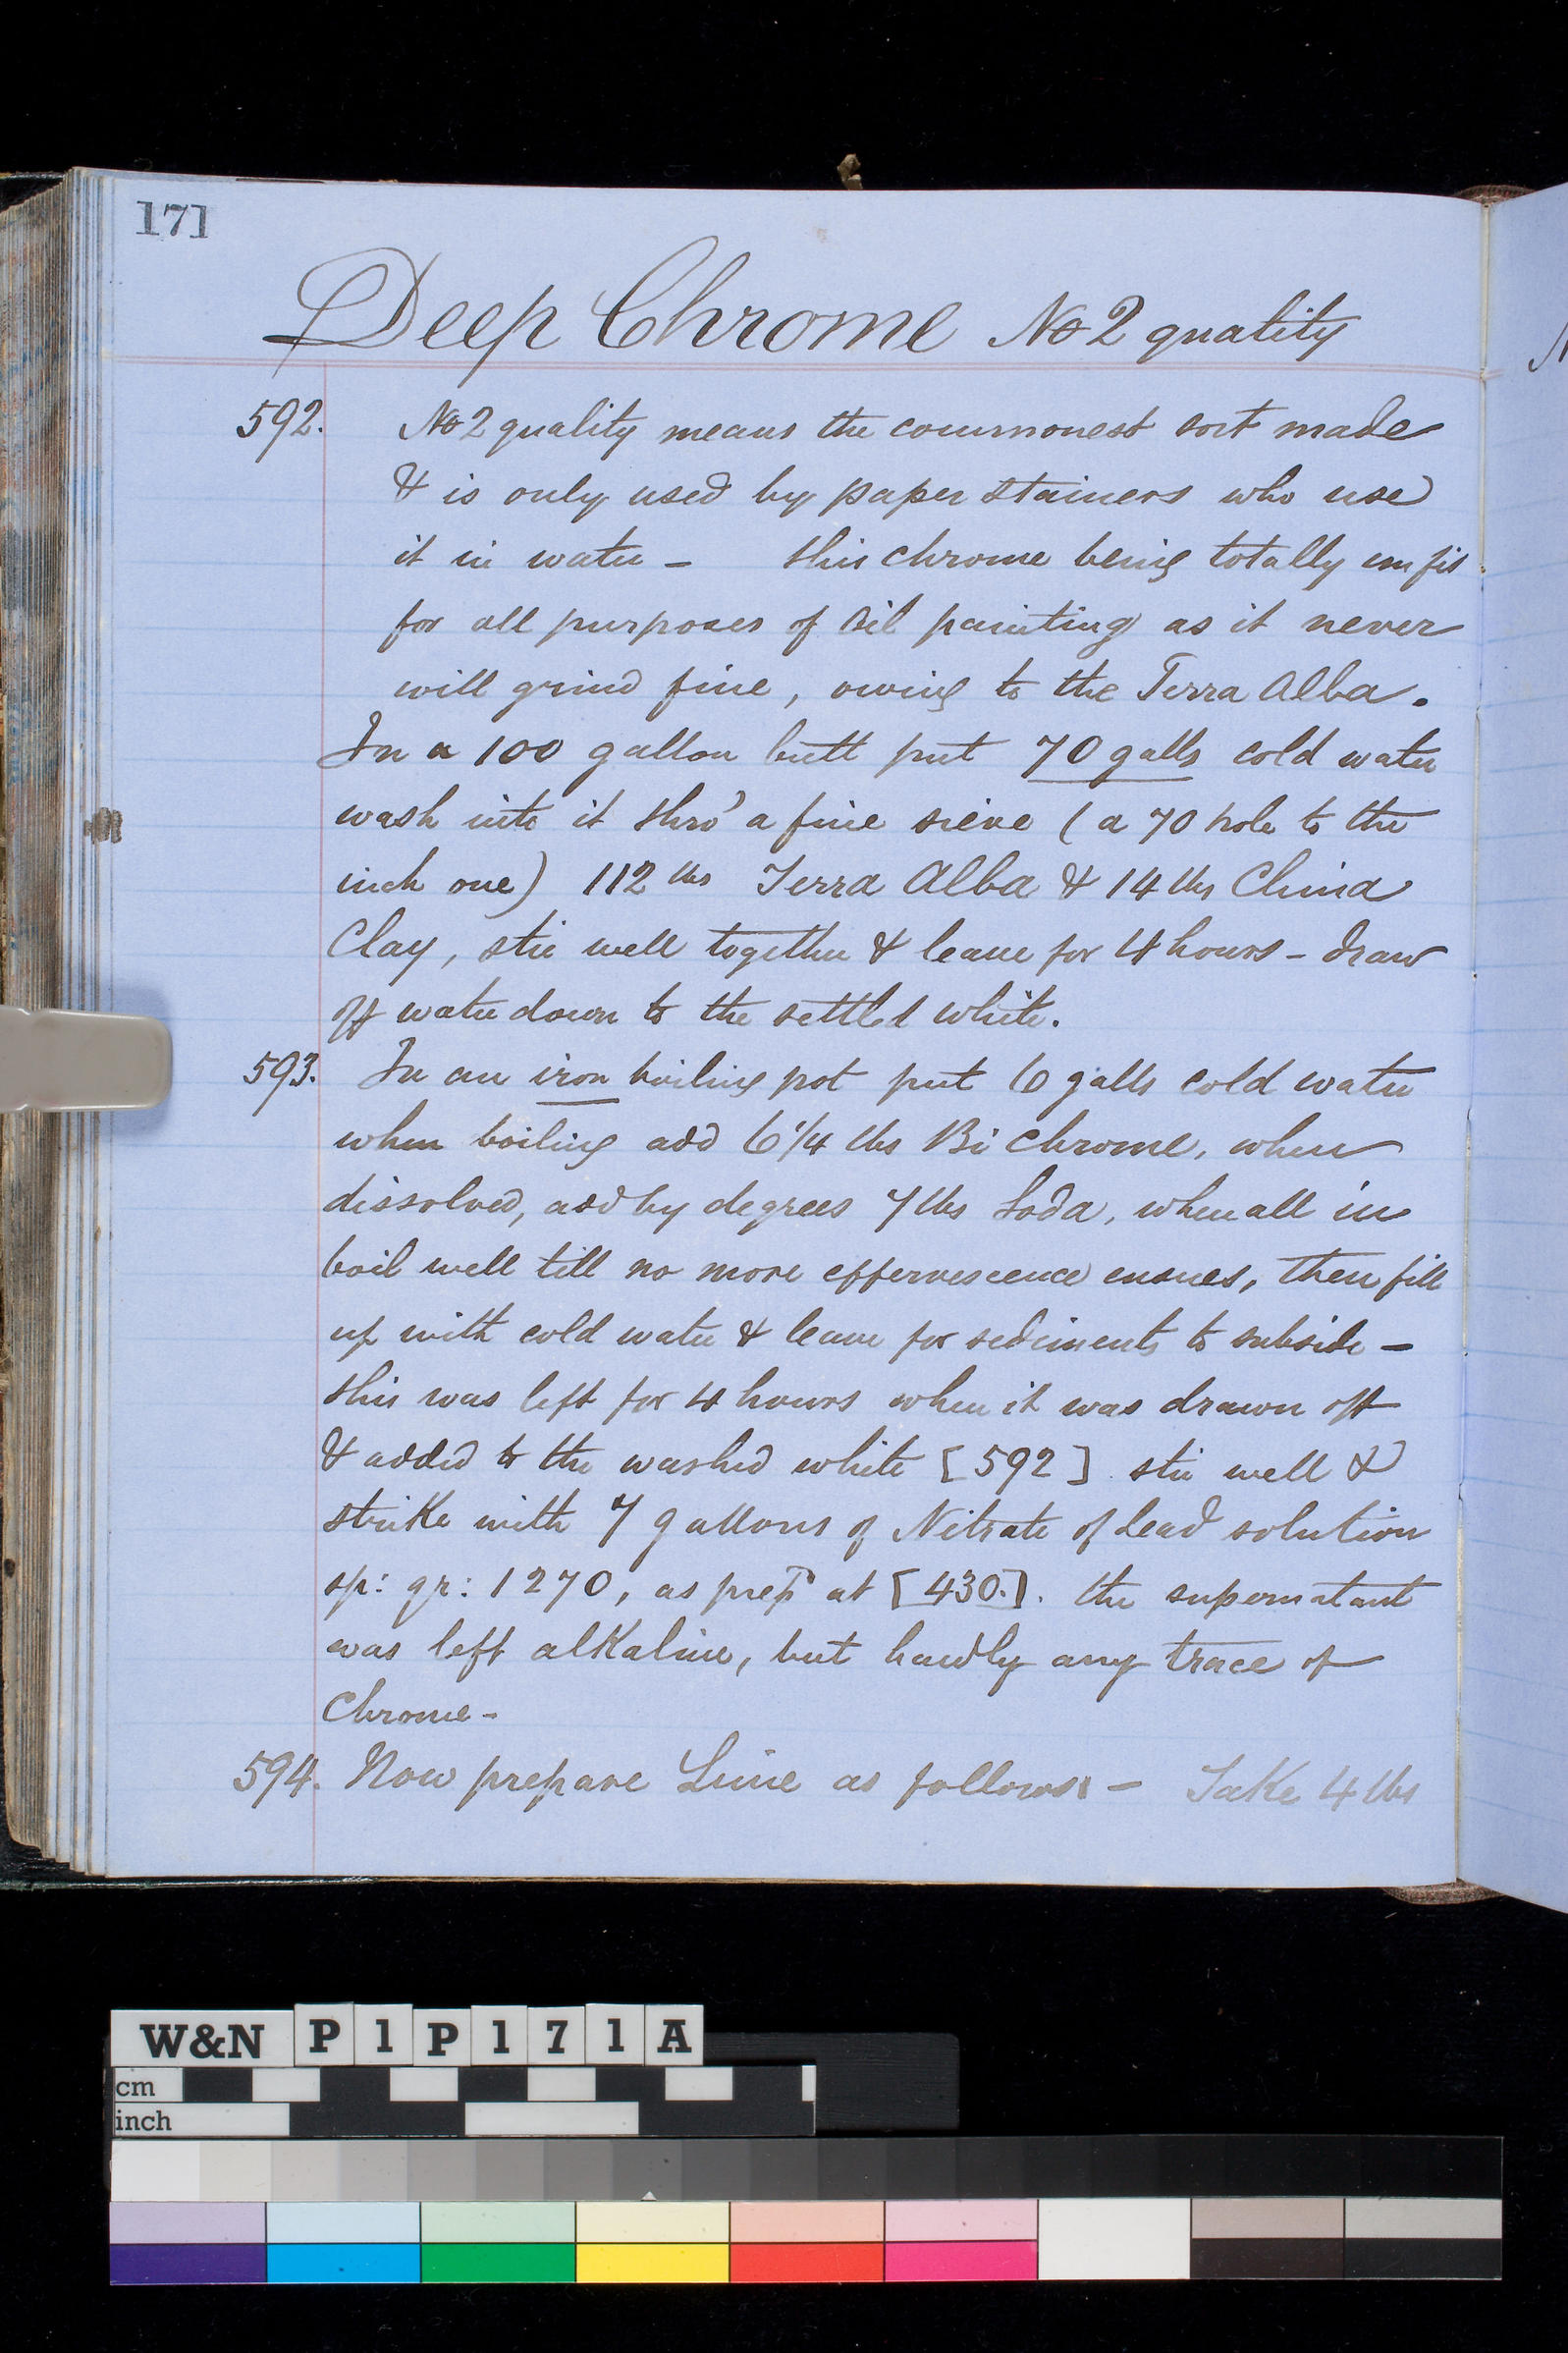 171
Deep Chrome No 2 quality
592. No 2 quality means the commonest sort made
& is only used by paper stainers who use
it in water - this chrome being totally unfit
for all purposes of oil painting as it never
will grind fine, owing to the Terra Alba.
In a 100 gallon butt put 70 galls cold water
wash into it thro' a fine sieve ( a 70 hole to the
inch one) 112 lbs Terra Alba & 14 lbs China
Clay, stir well together & leave for 4 hours - draw
off water down to the settled white.
593. In an iron boiling pot put 6 galls cold water
when boiling add 6 1/4 lbs Bi Chrome, when
dissolved, add by degrees 7 lbs Soda, when all in
boil well till no more effervescence ensues, then fill
up with cold water & leave for sediments to subside -
this was left for 4 hours when it was drawn off
& added to the washed white [592] stir well &
strike with 7 gallons of Nitrate of Lead solution
sp: gr: 1270, as prepd at [430.]. the supernatant
was left alkaline, but hardly any trace of
Chrome -
594. Now prepare Lime as follows - Take 4 lbs
W&N P1P171A
cm
inch